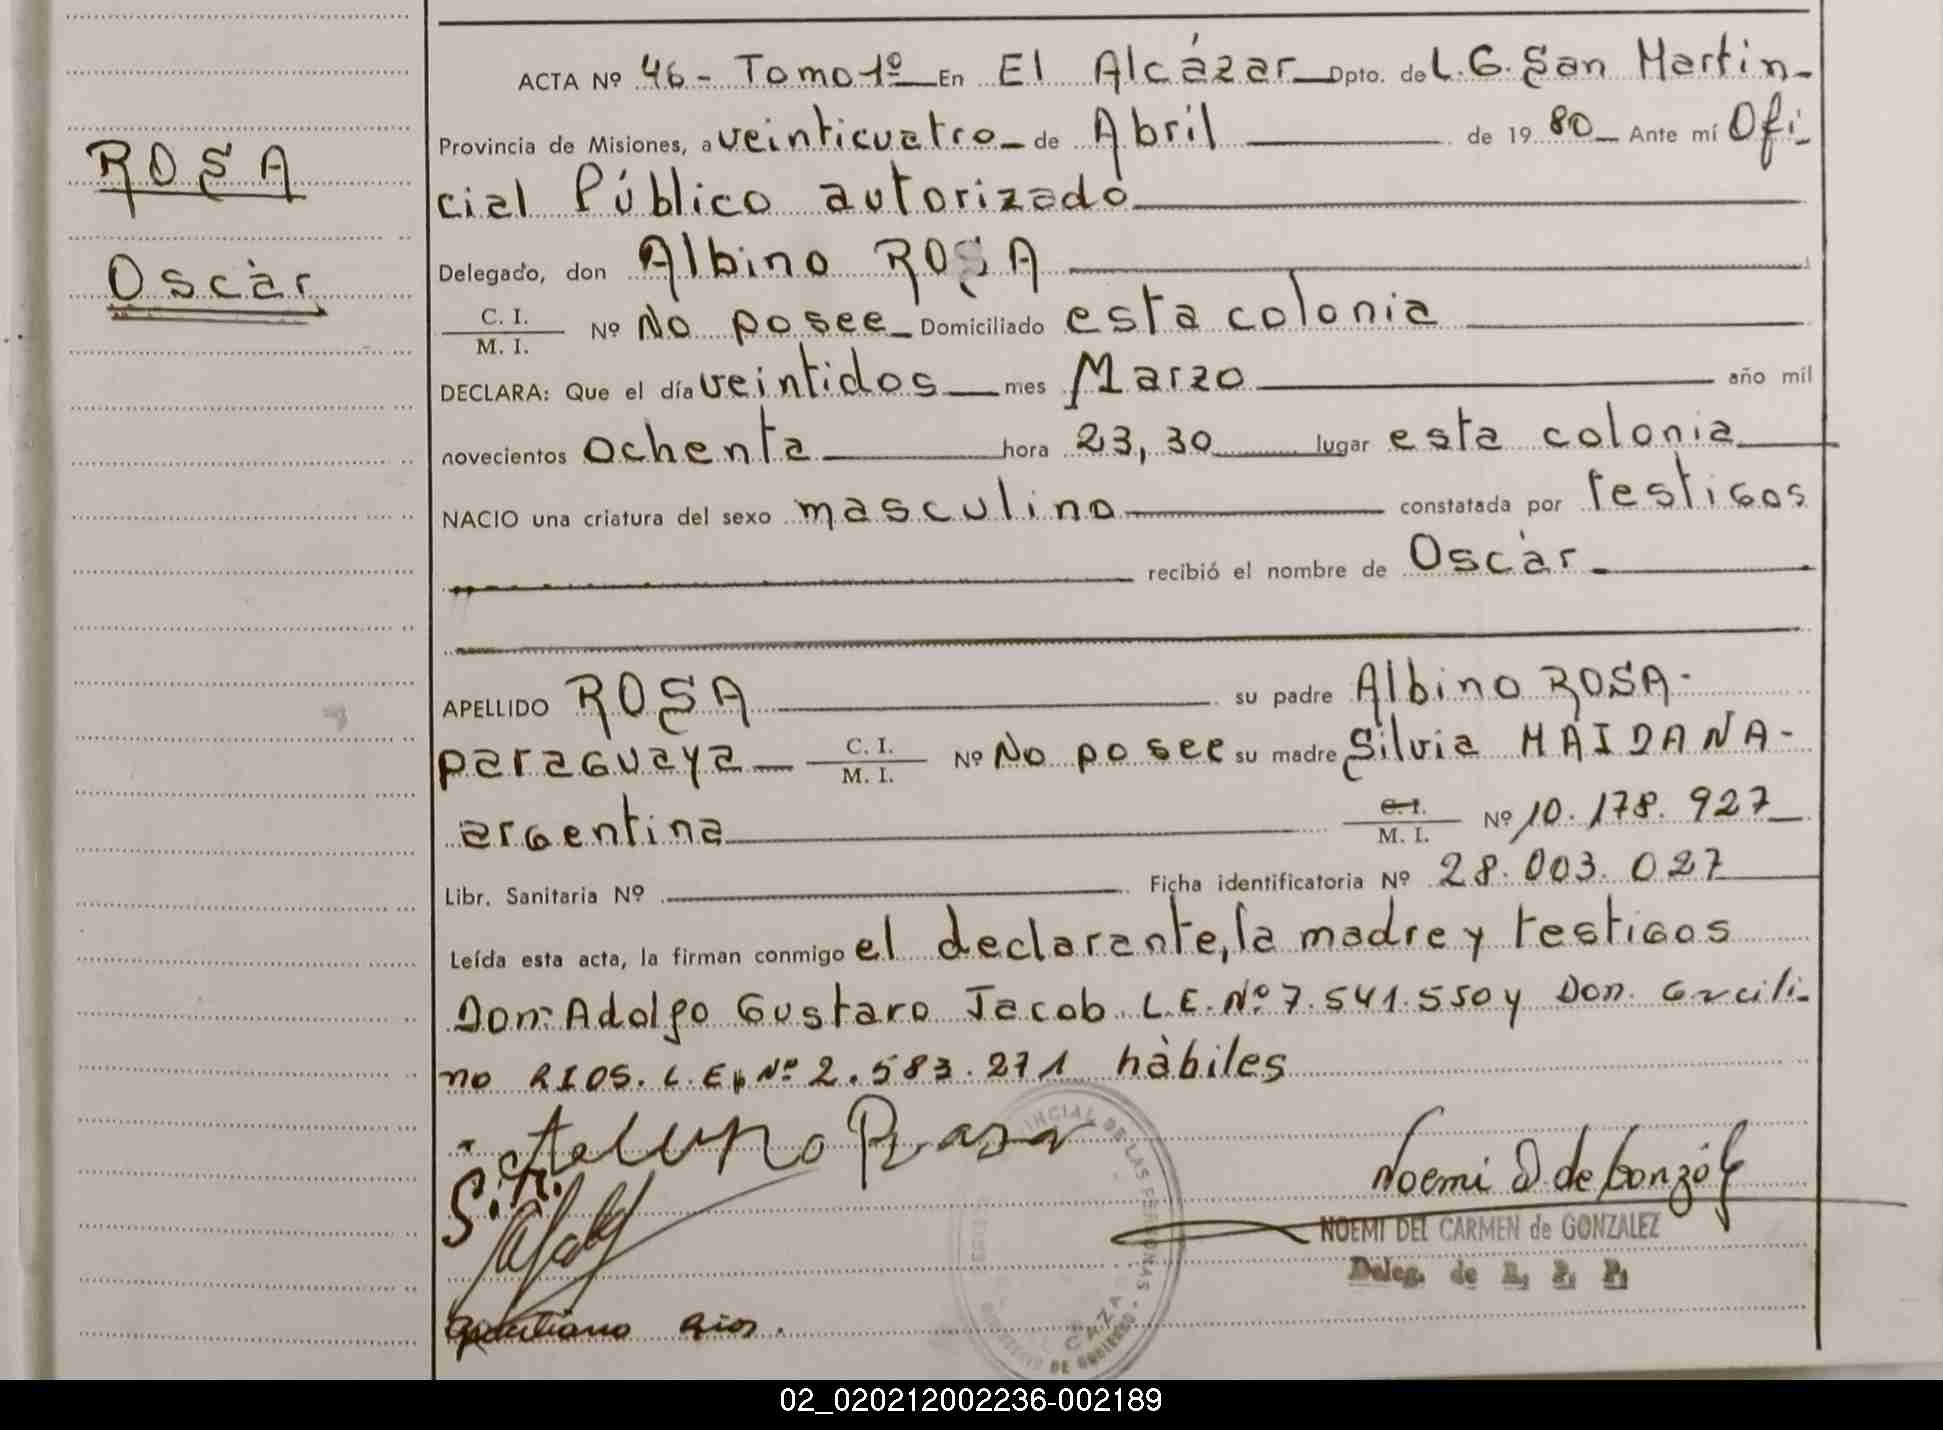 ACTA Nº 46- Tomo 1º En El Alcázar Dpto. de L.G. San Martin-
ROSA
Provincia de Misiones, a veinticuatro de Abril de 1980 Ante mí Ofi-
cial Público autorizado
Oscàr
Delegado, don Albino ROSA
C. I.
M. I. Nº No posee Domiciliado esta colonia
DECLARA: Que el día veintidos mes Marzo año mil
novecientos ochenta hora 23,30 lugar esta colonia
NACIO una criatura del sexo masculino constatada por testigos
recibió el nombre de Oscàr
APELLIDO ROSA su padre Albino ROSA-
paraguaya C. I. M. I. Nº No posee su madre Silvia MAIDANA-
argentina C. I. M. I. Nº 10.178.927
Libr. Sanitaria Nº Ficha identificatoria Nº 28.003.027
Leída esta acta, la firman conmigo el declarante, la madre y testigos
Don: Adolfo Gustavo Jacob L.E. Nº 7.541.550 y Don
no RIOS. L.E. Nº 2.583.271 hàbiles
Noemi D de Gonzál
NOEMI DEL CARMEN de GONZALEZ
Deleg. de R. P. P.
Rios.
02_020212002236-002189